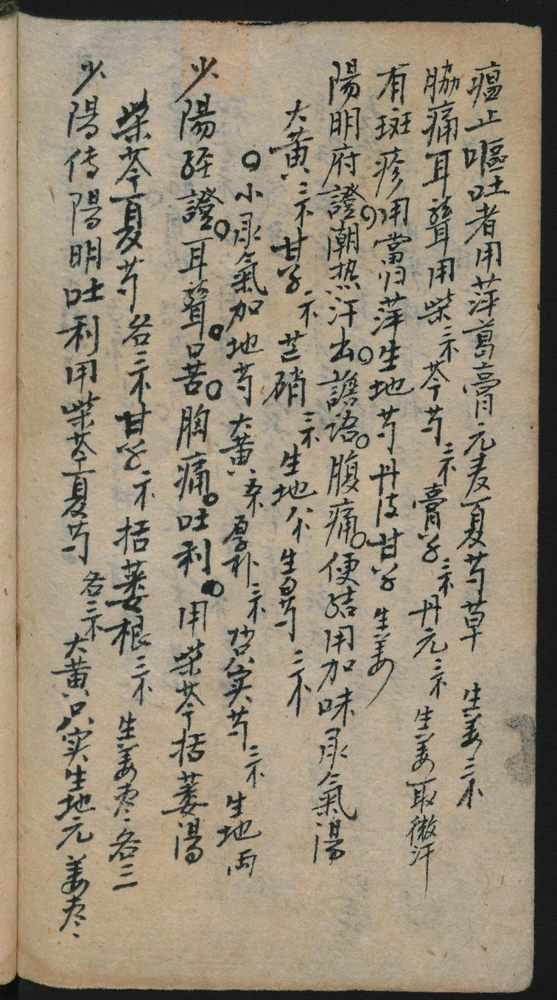 瘟止嘔吐者用萍葛膏元麦夏芍草 生姜三不
脇痛耳聋用柴三不芩芍三不膏三不丹元三不生姜取微汗
有斑疹用當归萍生地芍丹皮甘 生姜
陽明府證潮热汗出譫语腹痛便结用加味承氣湯
大黄三不甘 不芒硝三不生地 生白芍三不
小承氣加地芍 大黄 厚朴三不 实芍三不 生地两
少陽经證耳聋口苦胸痛吐利用柴芩括蒌湯
柴芩夏芍各三不甘 不括蒌根三不 生姜枣各三
少陽传陽明吐利用柴芩夏芍各三不大黄只实生地元姜枣